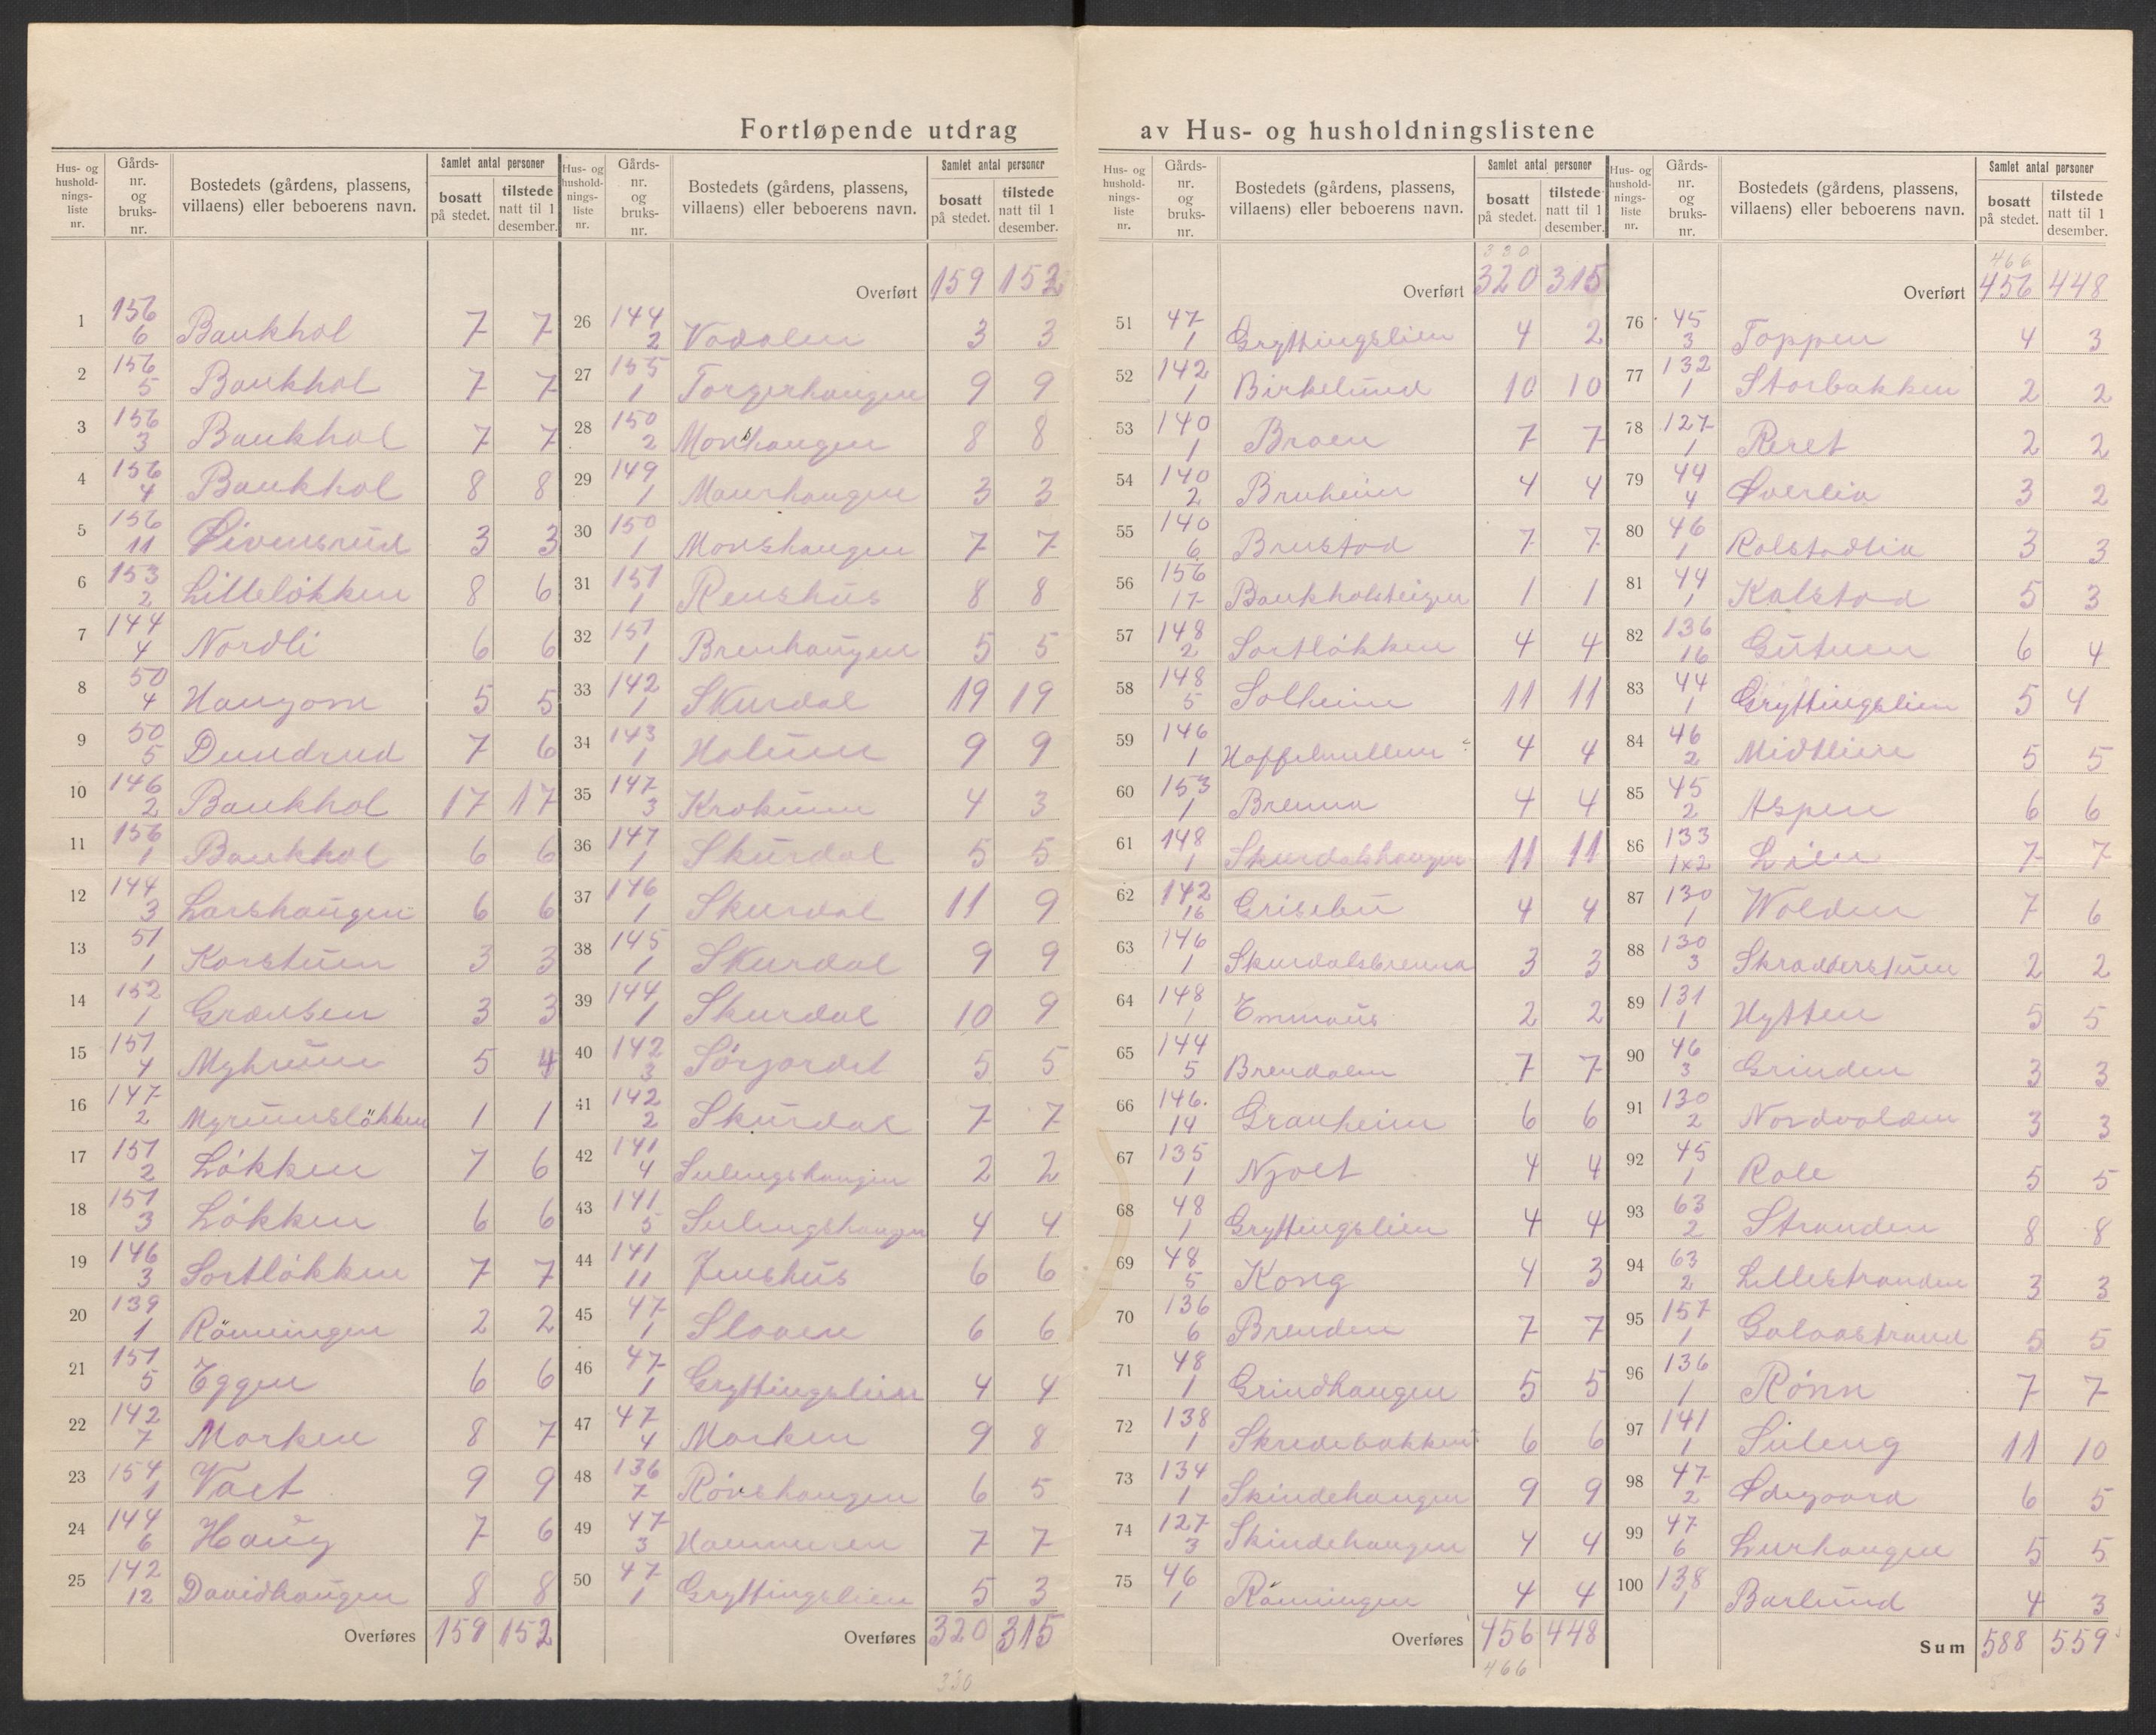 Fortløpende utdrag av Hus- og husholdningslistene
Hus- og husholdnings-liste nr. | Gårds-nr. og bruks-nr. | Bostedets (gårdens, plassens, villaens) eller beboerens navn. | Samlet antal personer bosatt på stedet. | tilstede natt til 1 desember.
1 156/6 Baukhol 7 7
2 156/5 Baukhol 7 7
3 156/3 Baukhol 7 7
4 156/4 Baukhol 8 8
5 156/11 Øivensrud 3 3
6 153/2 Lilleløkken 8 6
7 144/4 Nordli 6 6
8 50/4 Haugom 5 5
9 50/5 Dundrud 7 6
10 146/2 Baukhol 17 17
11 156/1 Baukhol 6 6
12 144/3 Larshaugen 6 6
13 51/1 Korstuen 3 3
14 152/1 Grænsen 3 3
15 151/4 Myhruen 5 4
16 147/2 Myruensløkken 1 1
17 151/2 Løkken 7 6
18 151/3 Løkken 6 6
19 146/3 Sortløkken 7 7
20 139/1 Rönningen 2 2
21 151/5 Eggen 6 6
22 142/7 Morken 8 7
23 154/1 Vaet 9 9
24 144/6 Haug 7 6
25 142/12 Davidhaugen 8 8
Overføres 159 152
Overført 159 152
26 144/2 Vodalen 3 3
27 155/1 Torgerhaugen 9 9
28 150/2 Monshaugen 8 8
29 149/1 Maurhaugen 3 3
30 150/1 Monshaugen 7 7
31 151/1 Renshus 8 8
32 151/1 Brenhaugen 5 5
33 142/1 Skurdal 19 19
34 143/1 Holuen 9 9
35 147/3 Krokuen 4 3
36 147/1 Skurdal 5 5
37 146/1 Skurdal 11 9
38 145/1 Skurdal 9 9
39 144/1 Skurdal 10 9
40 142/3 Sørjordet 5 5
41 142/2 Skurdal 7 7
42 141/4 Sulengshaugen 2 2
43 141/5 Sulengshaugen 4 4
44 141/11 Jenshus 6 6
45 47/1 Sloaen 6 6
46 47/1 Gryttingslien 4 4
47 47/4 Morken 9 8
48 136/7 Rønshaugen 6 5
49 47/3 Hammeren 7 7
50 47/1 Gryttingslien 5 3
Overføres 320 315
330
330
Overført 320 315
51 47/1 Gryttingslien 4 2
52 142/1 Birkelund 10 10
53 140/1 Broen 7 7
54 140/2 Bruheim 4 4
55 140/6 Brustad 7 7
56 156/17 Baukholsteigen 1 1
57 148/2 Sortløkken 4 4
58 148/5 Solheim 11 11
59 146/1 Hoffelmellem 4 4
60 153/1 Brenna 4 4
61 148/1 Skurdalshaugen 11 11
62 142/16 Grisebu 4 4
63 146/1 Skurdalsbrenna 3 3
64 148/1 Emmaus 2 2
65 144/5 Brendalen 7 7
66 146/14 Granheim 6 6
67 135/1 Njolt 4 4
68 48/1 Gryttingslien 4 4
69 48/5 Kong 4 3
70 136/6 Brenden 7 7
71 48/1 Grindhaugen 5 5
72 138/1 Skredebakken 6 6
73 134/1 Skindehaugen 9 9
74 127/3 Skindehaugen 4 4
75 46/1 Rönningen 4 4
Overføres 456 448
466
466
Overført 456 448
76 45/3 Toppen 4 3
77 132/1 Storbakken 2 2
78 127/1 Reret 2 2
79 44/4 Øverlia 3 2
80 46/1 Rolstadlia 3 3
81 44/1 Kalstad 5 3
82 136/16 Gutuen 6 4
83 44/1 Gryttingslien 5 4
84 46/2 Midtlien 5 5
85 45/2 Aspen 6 6
86 133/1x2 Lien 7 7
87 130/1 Wolden 7 6
88 130/3 Skradderstuen 2 2
89 131/1 Hytten 5 5
90 46/3 Grinden 3 3
91 130/2 Nordvolden 3 3
92 45/1 Role 5 5
93 63/2 Stranden 8 8
94 63/2 Lillestranden 3 3
95 157/1 Golaastrand 5 5
96 136/1 Rønn 7 7
97 141/1 Suleng 11 10
98 47/2 Ødegaard 6 5
99 47/6 Lurhaugen 5 5
100 138/1 Barlund 4 3
Sum 588 559